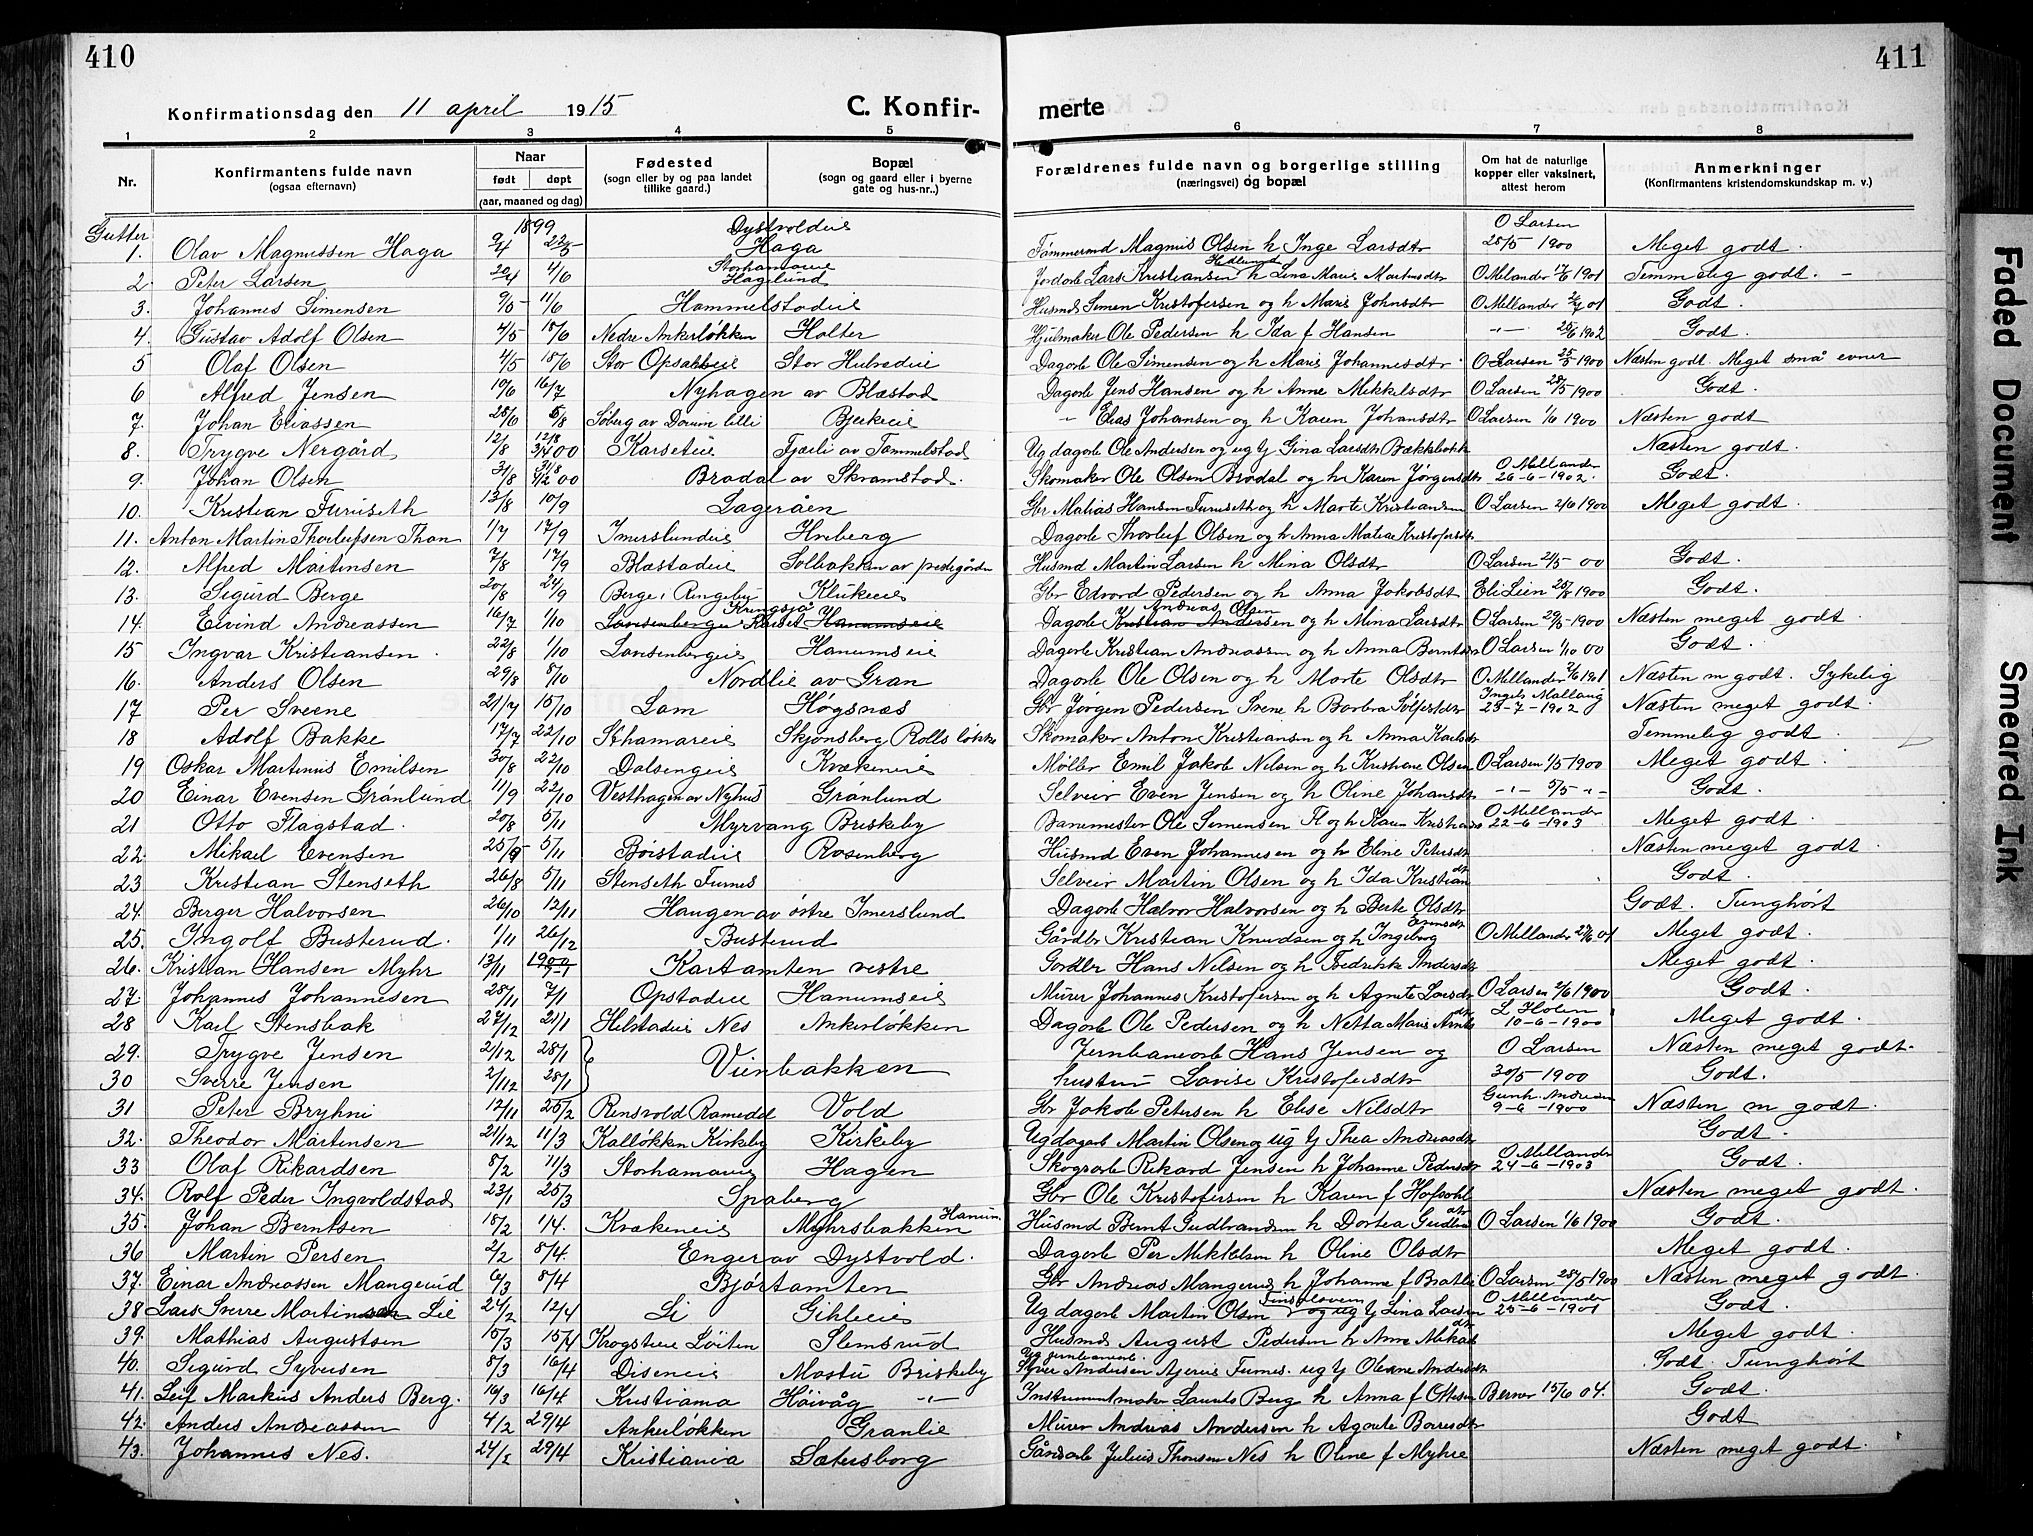 410
411
Konfirmationsdag den 11 april 1915
C. Konfir-
merte
1 2 3 4 5 6 7 8
Nr.
Konfirmantens fulde navn
(ogsaa efternavn)
Naar
født døpt
(aar, maaned og dag)
Fødested
(sogn eller by og paa landet
tillike gaard.)
Bopæl
(sogn og gaard eller i byerne
gate og hus-nr..)
Forældrenes fulde navn og borgerlige stilling
(næringsvei) og bopæl
Om hat de naturlige
kopper eller vaksinert,
attest herom
Anmerkninger
(Konfirmantens kristendomskundskap m. v.)
Gutter 1899
1. Olav Magnussen Haga 9/4 22/5 Dystvoldeie Haga Tømmermd Magnus Olsen h Inge Larsdtr O Larsen 28/5 1900 Meget godt.
2 Peter Larsen 20/4 4/6 Storhamareie Haglund Jordarb Lars Kristiansen Hedlund h Lina Marie Martinsdtr O Melander 17/6 1901 Temmelig godt. -
3. Johannes Simensen 9/5 11/6 Hammelstadeie Husmd Simen Kristofersen og h Marie Johnsdtr O Millander 01 Godt.
4 Gustav Adolf Olsen 4/5 18/6 Nedre Ankerløkken Holter Hjulmaker Ole Pedersen h Ida f Hansen -"- 25/6 1902 Godt.
5 Olaf Olsen 4/5 18/6 Stor Opsahleie Stor Hulredeie Dagarb Ole Simensen og h Marie Johannesdtr. O Larsen 25/5 1900 Næsten godt. Meget små evner
6 Alfred Jensen 10/6 16/7 Nyhagen av Blæstad Dagarb Jens Hansen og h Anne Mikkelsdtr O Larsen 28/5 1900 Godt.
7. Johan Eliassen 28/6 5/8 Søberg av Dørum lille Bjerkeeie " Elias Johansen og h Karen Johansdtr O Larsen 1/6 1900 Næsten godt
8. Trygve Nergård 12/8 12/8 3/4 00 Karseteie Fjæili av Tommelstad Ug dagarb Ole Andersen og ug tj Gina Larsdtr Bækkelokk Næsten godt.
9. Johan Olsen 31/8 4/12 00 Bradal av Skramstad. Skomaker Ole Olsen Bradal og h Karen Jørgensdtr O Millander 26-6-1902. Godt.
10. Kristian Furuseth 13/8 10/9 Lageråen Gbr Matias Hansen Furuseth og h Marte Kristiansen O Larsen 2/6 1900 Meget godt.
11. Anton Martin Thorleifsen Thon 1/7 17/9 Imerslundeie Hveberg Dagarb Thorleif Olsen og h Anna Matea Kristofersdtr
12. Alfred Martinsen 7/8 17/9 Blæstadeie Solbakken av prestegården Husmd Martin Larsen h Mina Olsdtr O Larsen 21/5-00 Godt.
13. Sigurd Berge 20/8 24/9 Berge i Ringebu Klukeeie Gbr Edvard Pedersen og h Anna Jakobsdtr Eli Lien 25/8 1900 Godt.
14. Eivind Andreassen 16/7 1/10 Lausenbergeie Kringsjå Hanumseie Dagarb Kristian Andersen Andreas Olsen og h Mina Larsdtr O Larsen 29/5-1900 Næsten meget godt.
15 Ingvar Kristiansen. 22/8 1/10 Lausenbergeie Hanumseie Dagarb Kristian Andreassen og h Anna Berntsdtr O Larsen 1/10 00 Godt.
16. Anders Olsen 29/8 8/10 Nordlie av Gran Dagarb Ole Olsen og h Marte Olsdtr O Millander 2/6 1901 Næsten m godt. Sykelig
17 Per Sveene 21/7 15/10 Lam Høgsnæs Gbr Jørgen Pedersen Svene h Barbra Sølfestdtr Ingels Mallaug 28-7-1902 Næsten meget godt.
18 Adolf Bakke 17/7 22/10 Sthamareie Skjonsberg Rolls løkke Skomaker Anton Kristiansen og h Anna Karlsdtr Temmelig godt.
19 Oskar Martinus Emilsen 30/8 22/10 Dalsengeie Kvækeneie Møller Emil Jakob Nilsen og h Kristiane Olsen O Larsen 1/5 1900 Meget godt.
20 Einar Evensen Grønlund 11/9 22/10 Vesthagen av Nyhus Grønlund Selveier Even Jensen og h Oline Johansdtr -"- 5/5 -"- Godt.
21 Otto Flagstad. 20/8 5/11 Myrvang Briskeby Banemester Ole Simensen Fl og h Karen Kristians O Millander 22-6-1903 Meget godt.
22. Mikael Evensen 25/9 5/11 Børstadeie Rosenberg Husmd Even Johannesen og h Eline Petersdtr Næsten meget godt.
23 Kristian Stenseth 26/8 5/11 Stenseth Furnes Selveir Martin Olsen og h Ida Kristiandtr Godt.
24. Berger Halvorsen 26/10 12/11 Haugen av østre Imerslund Dagarb Halvor Halvorsen og h Berte Olsdtr Godt. Tunghørt
25. Ingolf Busterud. 1/11 26/12 Busterud Gårdbr Kristian Knudsen og h Ingeborg Evensdtr O Millander 27/6 01 Meget godt.
26. Kristian Hansen Myhr 13/11 1900 7-1 Kartomten vestre Gardbr Hans Nilsen og h Fredrikke Andersdtr Meget godt.
27 Johannes Johannesen 28/11 7/1 Opstadeie Hanumseie Murer Johannes Kristofersen og h Agnete Larsdtr O Larsen 2/6 1900 Godt.
28 Karl Stensbak 27/12 21/1 Helstadeie Nes Ankerløkken Dagarb Ole Pedersen og h Netta Marie Arnts dtr L Holen 10-6-1900 Meget godt.
29. Trygve Jensen 2/12 28/1 Vienbakken Jernbanearb Hans Jensen og O Larsen Næsten meget godt.
30 Sverre Jensen 2/12 28/1 hustru Lovise Kristofersdtr 30/5 1900 Godt.
31 Peter Bryhni 12/11 25/2 Rensvold Romedal Vold Gbr Jakob Petersen h Elise Nilsdtr Gunh. Andresen 9-6-1900 Næsten m godt.
32. Theodor Martinsen 21/12 11/3 Kalløkken Kirkeby Kirkeby Ug dagarb Martin Olsen og ug tj Thea Andreasdtr Godt.
33 Olaf Rikardsen 8/2 11/3 Storhamareie Hagen Skogsarb Rikard Jensen h Johanne Pedersdtr O Millander 24-6-1903 Godt.
34. Rolf Peder Ingvoldstad 23/1 25/3 Spaberg Gbr Ole Kristofersen h Karen f Hofsahl Næsten meget godt.
35. Johan Berntsen 18/2 1/4. Kvækeneie Myhrsbakken Hanum. Husmd Bernt Gudbrandsen h Dortea Gudbr dtr O Larsen 1/6 1900 Godt.
36 Martin Persen 2/2 8/4. Enger av Dystvold. Dagarb Per Mikkelsen h Oline Olsdtr Meget godt.
37. Einar Andreassen Mangerud 6/3 8/4 Bjørtomten Gbr Andreas Mangerud h Johanne f Bratlie O Larsen 28/5 1900 Næsten meget godt.
38 Lars Sverre Martinsen Lie 24/2 12/4 Li Gihleeie Ug dagarb Martin Olsen Finsalsveen og ug tj Lina Larsen O Millander 25-6-1901 Godt.
39. Mathias Augustsen 15/3 15/4 Krogstieie Løiten Slemsrud Husmd August Pedersen h Anne Mikaels dtr Meget godt.
40. Sigurd Syversen 8/3 16/4 Diseneie Mostu Briskeby Ug jernbanearb. Syver Andersen Ajereie Furnes. ug tj Oleane Andersdtr Godt. Tunghørt
41. Leif Markus Anders Berg. 16/3 16/4 Kristiania Höivåg -"- Instrumentmaker Laurits Berg h Anna f Ottesen Berner 15/6 04. Godt.
42. Anders Andreassen 4/2 29/4 Ankerløkken Granlie Murer Andreas Andersen h Agnete Boresdtr Godt
43. Johannes Nes. 24/2 29/4 Kristiania Sætersborg Gårdarb Julius Thomsen Nes h Oline f Myhre Næsten meget godt.
Faded Document
Smeared Ink